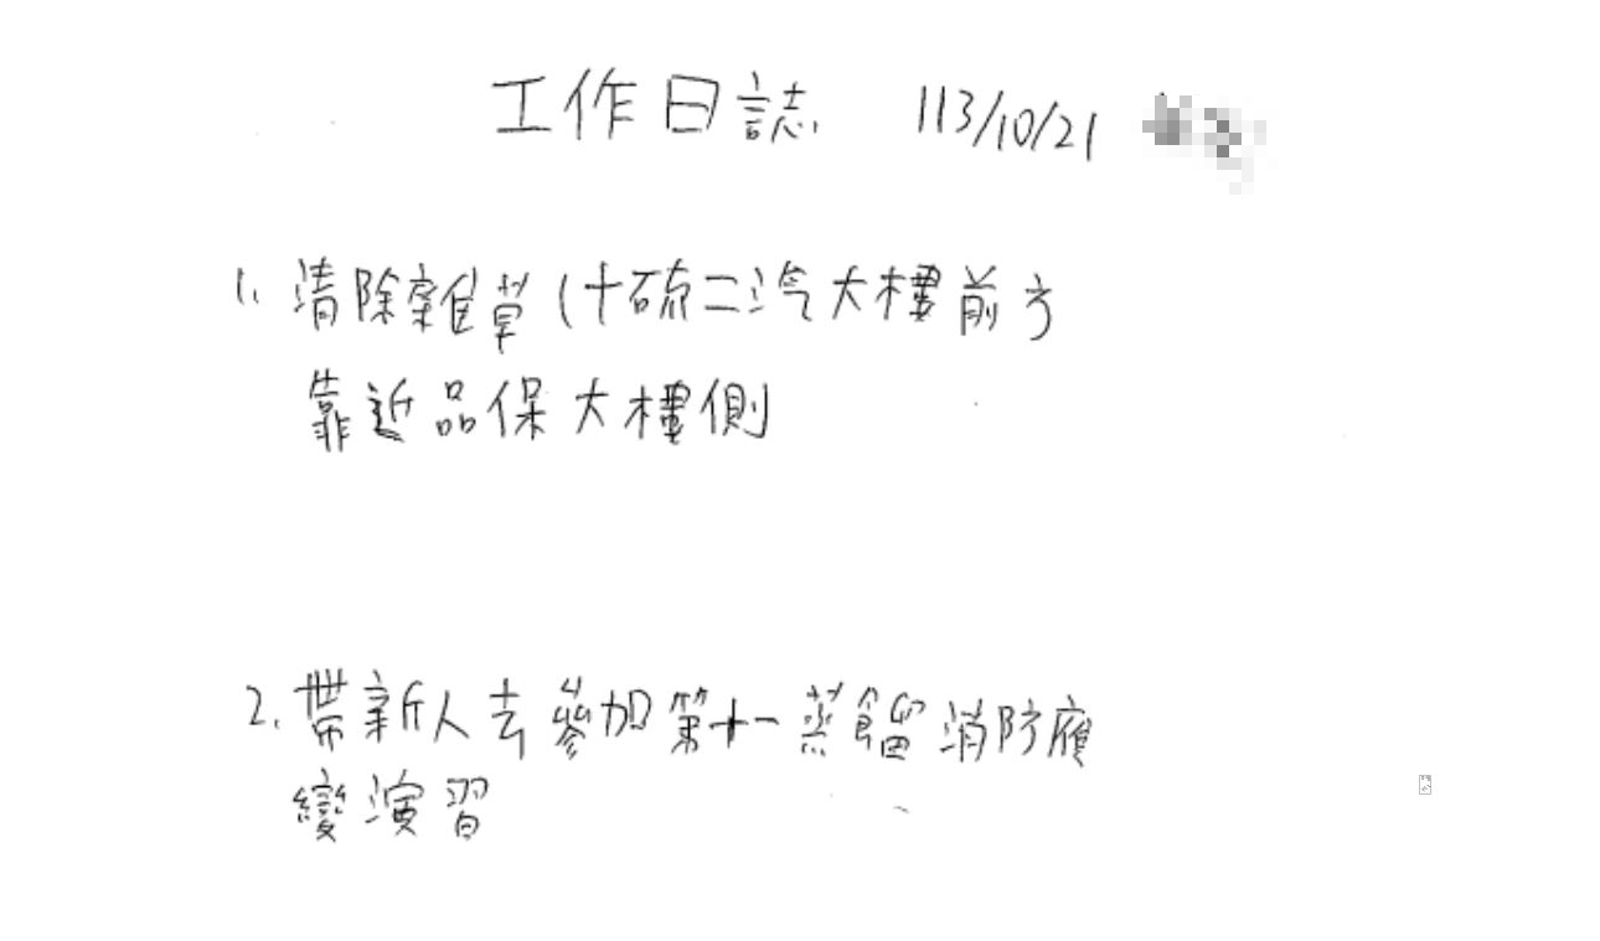 工作日誌 113/10/21
1. 清除雜草(十硫二汽大樓前方
靠近品保大樓側
2. 帶新人去參加第十一蒸餾消防應
變演習